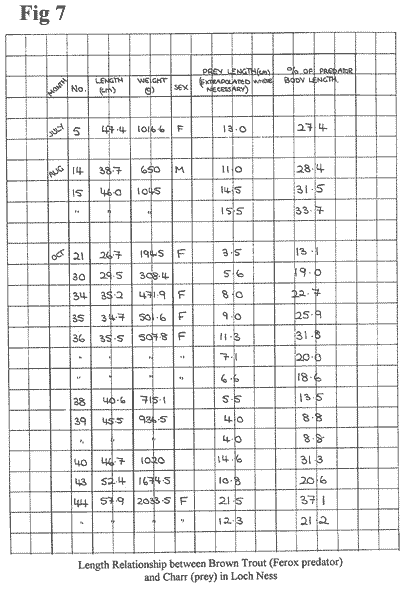 Fig 7
MONTH No. LENGTH (cm) WEIGHT (g) SEX PREY LENGTH (cm) (EXTRAPOLATED WHERE NECESSARY) % OF PREDATOR BODY LENGTH.
JULY 5 47.4 1016.6 F 13.0 27.4
AUG 14 38.7 650 M 11.0 28.4
15 46.0 1045 14.5 31.5
" " 15.5 33.7
OCT 21 26.7 194.5 F 3.5 13.1
30 29.5 308.4 5.6 19.0
34 35.2 471.9 F 8.0 22.7
35 34.7 501.6 F 9.0 25.9
36 35.5 507.8 F 11.3 31.8
" " " " 7.1 20.0
" " " " 6.6 18.6
38 40.6 715.1 5.5 13.5
39 45.5 936.5 4.0 8.8
" " " 4.0 8.8
40 46.7 1020 14.6 31.3
43 52.4 1674.5 10.8 20.6
44 57.9 2033.5 F 21.5 37.1
" " " 12.3 21.2
Length Relationship between Brown Trout (Ferox predator)
and Charr (prey) in Loch Ness